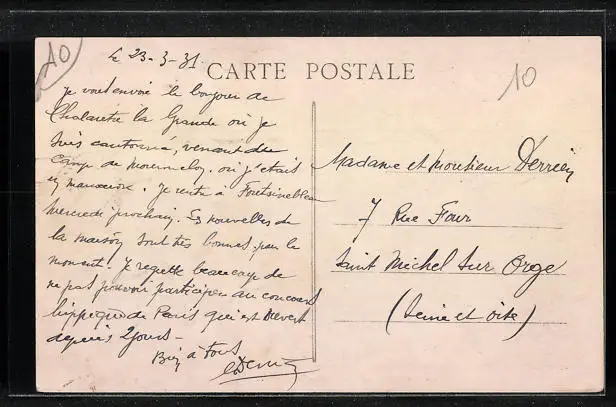 10
le 23-3-31
CARTE POSTALE
10
Je vous envoie le bonjour de
la Grande où je
suis cantonné, venant du
Camp de Mourmelon. où j'étais
en manoeuvre. Je rentre à Fontainebleau
mercredi prochain. Les nouvelles de
la maison sont très bonnes, pour le
moment. Je regrette beaucoup de
ne pas pouvoir participer au concours
hippique de Paris qui est ouvert
depuis 2 jours -
Bien à tous
Madame et Monsieur Derrien
7 Rue Four
Saint Michel sur Orge
(Seine et Oise)